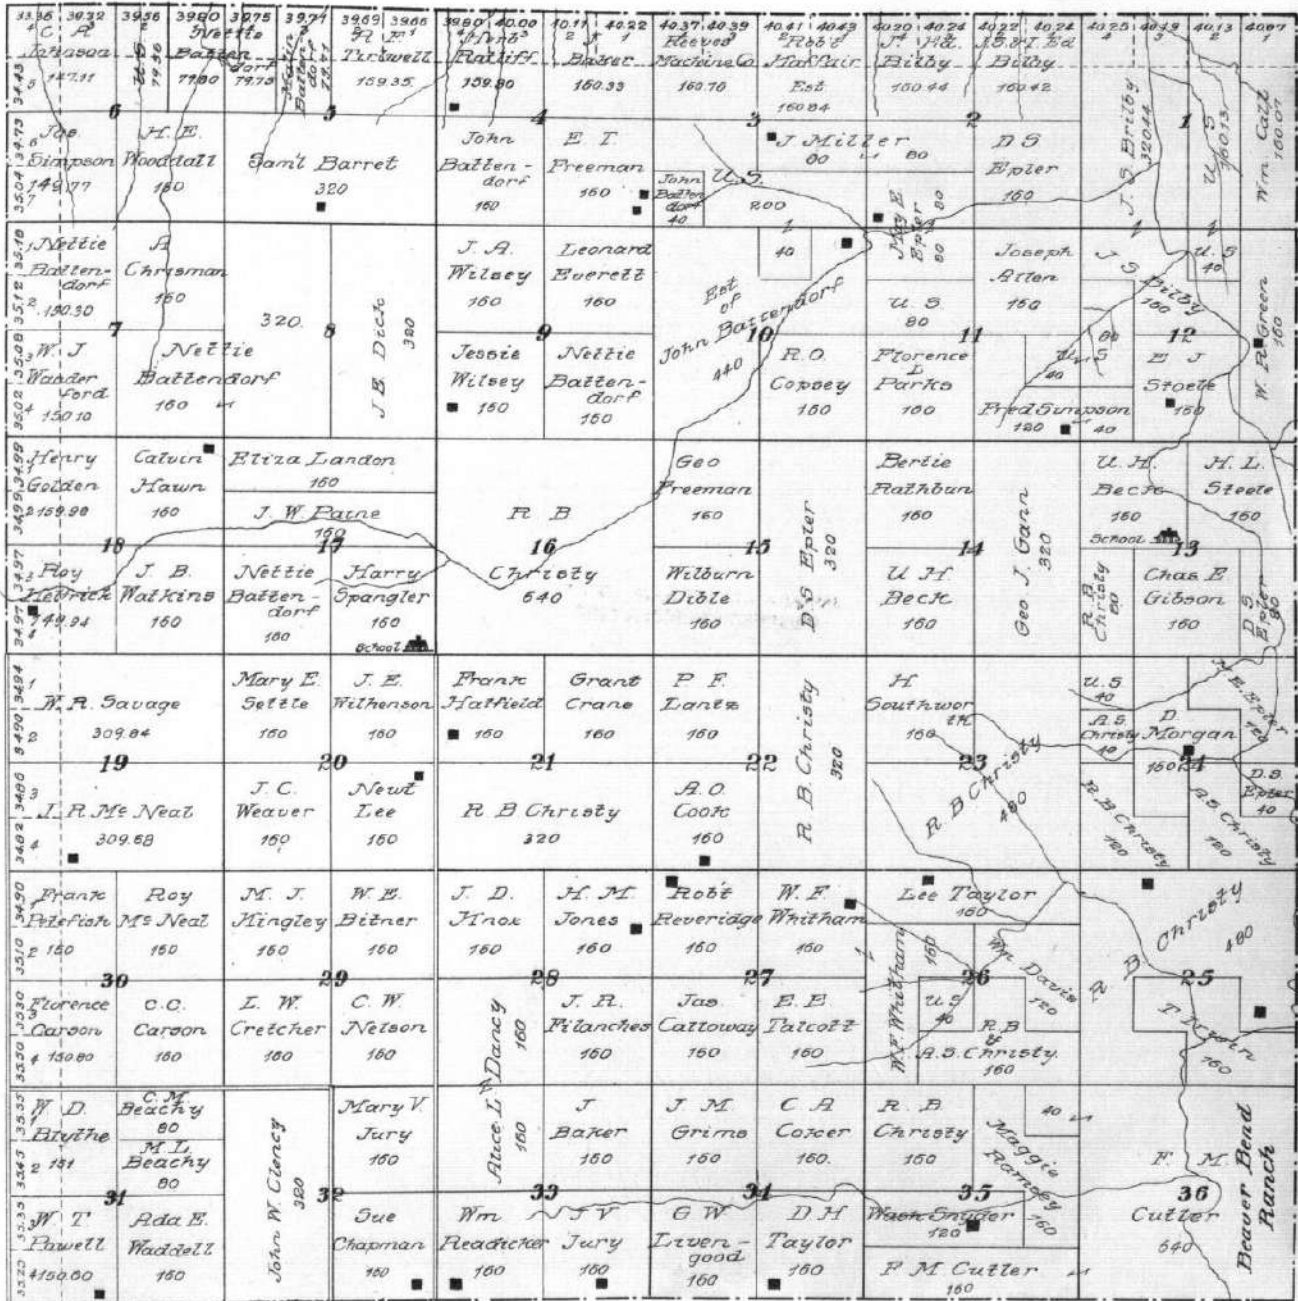 33.36 39.32 39.56 39.80 39.75 39.71 39.69 39.66 39.80 40.00 40.11 40.22 40.37 40.39 40.41 40.43 40.20 40.24 40.22 40.24 40.25 40.19 40.13 40.07
C A
147.11
U.S
79.56
Nettie
Batten-
dorf
79.80 79.75
Batten-
dorf
R. F.
Tirlwell
159.35
Herb
Ratliff
159.80
J
Baker
160.33
Reeves
Machine Co
160.76
Rob't
Haffair
Est
160.84
J. Ed.
Bilby
160.44
J.S. & I. Ed
Bilby
160.42
J. S Brilby
320.44
U S
160.13
Wm. Call
160.07
6 5 4 3 2 1
Jas.
Simpson
149.77
H. E.
Wooddall
160
Sam'l Barret
320
John
Batten-
dorf
160
E. T.
Freeman
160
John
Batten
dorf
40
U.S.
200
J. Miller
80 80
May E
Epler
80
80
D S
Epler
160
Nettie
Batten-
dorf
150.30
A
Chrisman
160
320
J E. Dech
320
J. A.
Wilsey
160
Leonard
Everett
160
Est
of
John Battendorf
440
40
U. S
80
Joseph
Allen
160
J S
Bilby
160
U. S
40
W. R Green
160
7 8 9 10 11 12
W. J
Wander
ford
150 10
Nettie
Battendorf
160
Jessie
Wilsey
160
Nettie
Batten-
dorf
160
R.O.
Copsey
160
Florence
L
Parks
160
U. S
80
40
Fred Simpson
120 40
E J
Steele
160
Henry
Golden
159.98
Calvin
Hawn
160
Eliza Landon
160
J. W. Paine
160
R B
Christy
640
Geo
Freeman
160
D S Epler
320
Bertie
Rathbun
160
Geo. J. Gann
320
U. H.
Beck
160
School
H. L.
Steele
160
18 17 16 15 14 13
Roy
Hetrick
149.94
J. B.
Watkins
160
Nettie
Batten-
dorf
160
Harry
Spangler
160
School
Wilburn
Dible
160
U H.
Beck
160
R B
Christy
80
Chas E
Gibson
160
D S
Epler
80
W. R. Savage
309.84
Mary E.
Settle
160
J. E.
Wilhenson
160
Frank
Hatfield
160
Grant
Crane
160
P F.
Lantz
160
R B. Christy
320
H
Southwor
th
160
R B Christy
480
U.S
40
A.S.
Christy
40
D.
Morgan
160
Epler
120
19 20 21 22 23 24
J. R. Mc Neal
309.68
J. C.
Weaver
160
Newt
Lee
160
R B Christy
320
A. O.
Cook
160
R B Christy
120
A S Christy
120
D.S.
Epler
40
Frank
Petefish
150
Roy
Mc Neal
160
M. J.
Hingley
160
W. E.
Bitner
160
J. D.
Knox
160
H. M.
Jones
160
Rob't
Reveridge
160
W. F
Whitham
160
Lee Taylor
160
W.F. Whitham
160
Wm Davis
120
R B Christy
480
30 29 28 27 26 25
Florence
Carson
150.80
C. C.
Carson
160
L. W.
Cretcher
160
C. W.
Nelson
160
Alice L Dancy
160
160
J. R.
Filanches
160
Jas
Calloway
160
E. E
Talcott
160
U S
40
R B
&
A.S. Christy.
160
160
W. D.
Blythe
151
C. M.
Beachy
80
M. L.
Beachy
80
John W. Clency
320
Mary V.
Jury
160
J
Baker
160
J. M
Grims
160
C A
Coker
160.
R. B
Christy
160
Maggie
Ramsey
160
40
F. M.
Cutler
640
Beaver Bend
Ranch
31 32 33 34 35 36
W T
Pawell
150.60
Ada E.
Waddell
160
Sue
Chapman
160
Wm
Readicker
160
J V
Jury
160
G W
Liven-
good
160
D. H
Taylor
160
Wash Snyder
120
F M Cutler
160